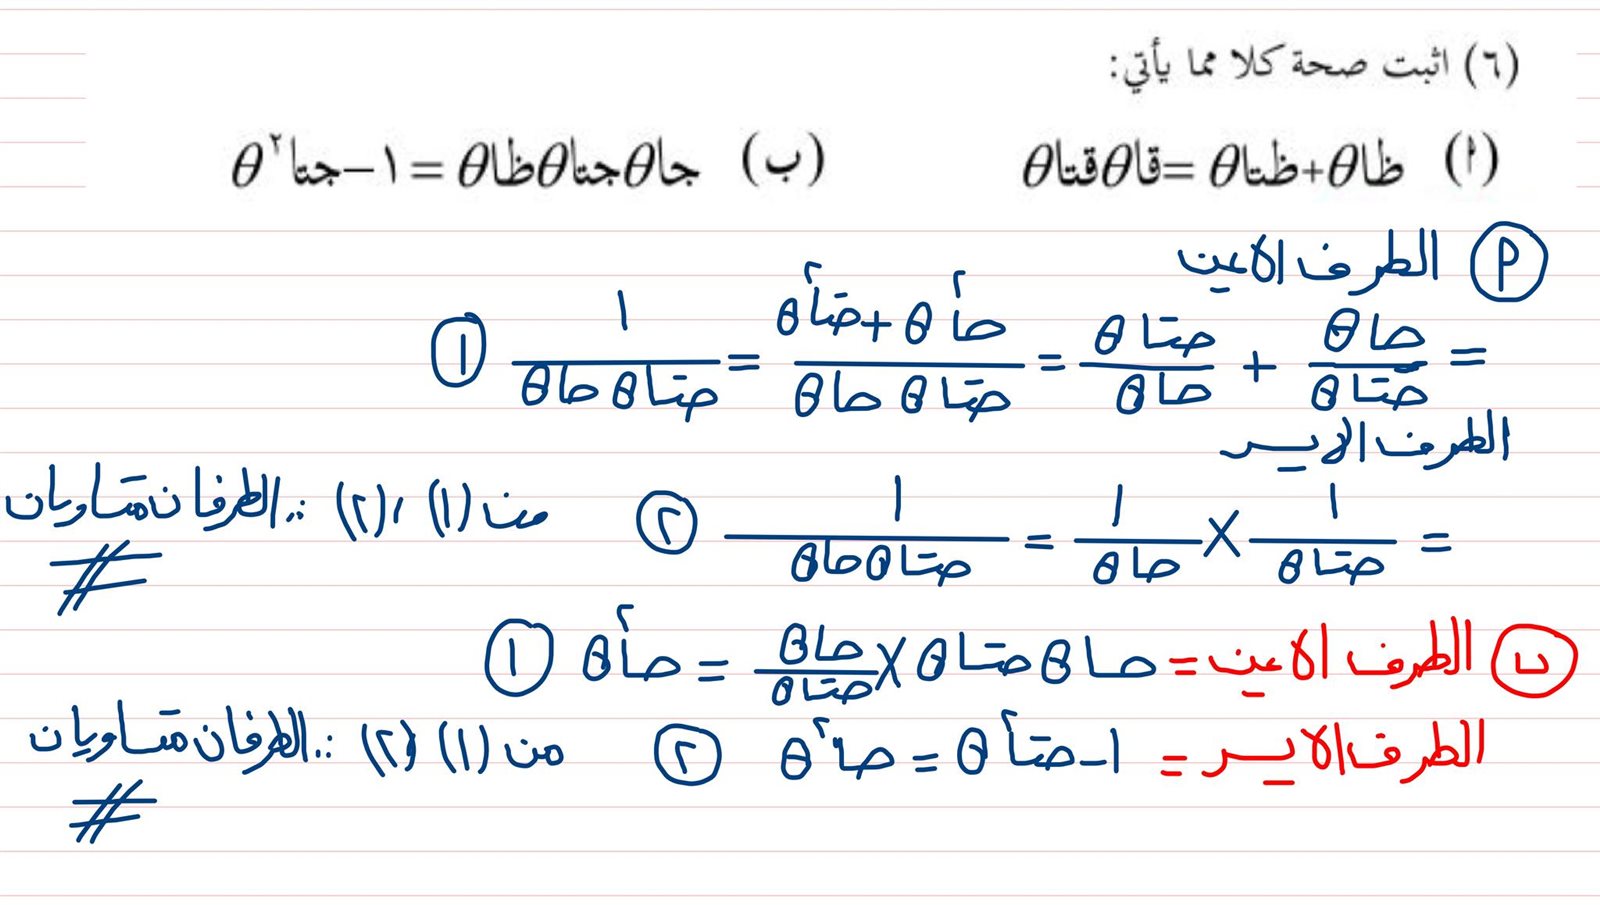 (٦) اثبت صحة كلا مما يأتي:
(أ) ظاθ+ظتاθ =قاθقتاθ (ب) جاθجتاθظاθ = ١−جتا٢θ
أ الطرف الايمن
= حاθ/حتاθ + حتاθ/حاθ = (حا٢θ + حتا٢θ)/(حتاθ حاθ) = ١/(حتاθ حاθ) ١
الطرف الايسر
= ١/حتاθ × ١/حاθ = ١/(حتاθ حاθ) ٢ من (١)، (٢) ∴ الطرفان متساويان
ب الطرف الايمن = حاθ حتاθ × حاθ/حتاθ = حا٢θ ١
الطرف الايسر = ١−حتا٢θ = حا٢θ ٢ من (١) (٢) ∴ الطرفان متساويان